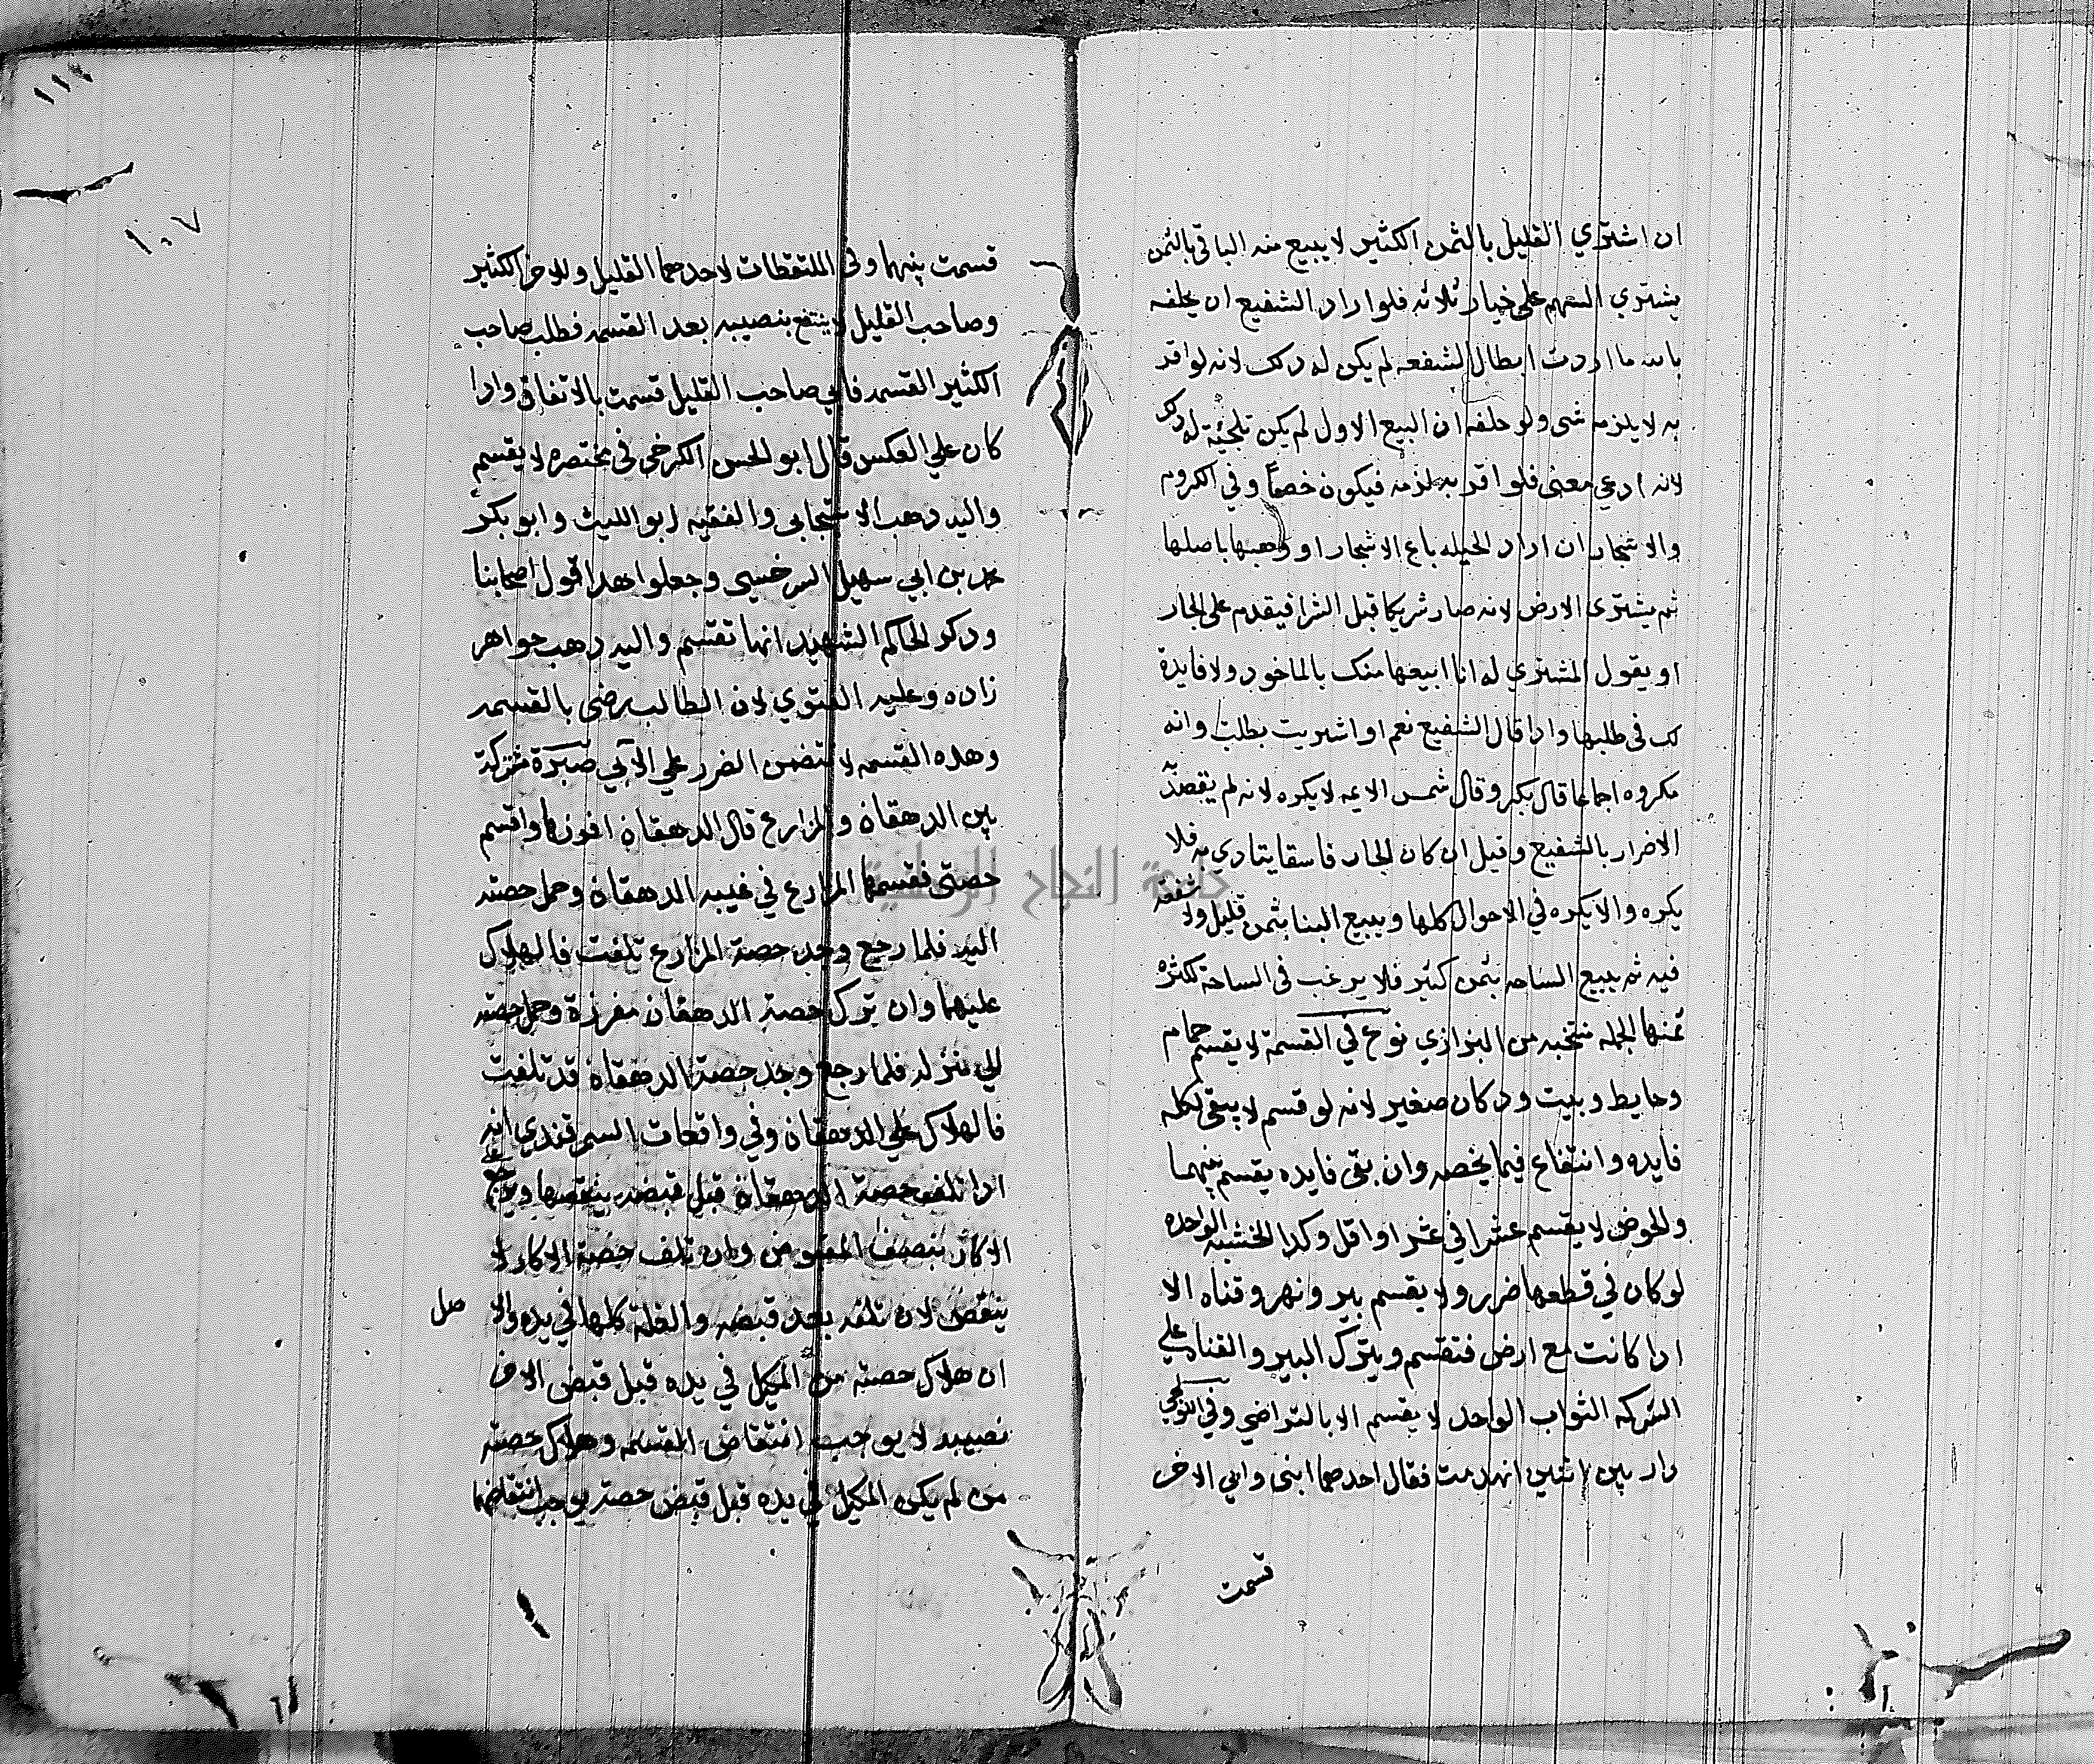 ان اشتري القليل بالثمن الكثير لا يبيع منه الباقي بالثمن
يشتري السهم علي خيار ثلاثه فلو اراد الشفيع ان يحلفه
بالله ما اردت ابطال الشفعه لم يكن له دلك لانه لو اقر
به لا يلزمه شي ولو حلفه ان البيع الاول لم يكن تلجئة له دلك
لانه ادعي معني فلو اقر به يلزمه فيكون خصما وفي الكروم
والاشجار ان اراد الحيله باع الاشجار او وهبها باصلها
ثم يشتري الارض لانه صار شريكا قبل الشرا فيقدم علي الجار
او يقول المشتري له انا ابيعها منك بالماخود ولا فايدة
لك في طلبها وادا قال الشفيع نعم او اشتريت بطلت وانه
مكروه اجماعا قال بكر وقال شمس الايمه لا يكره لانه لم يقصد
الاضرار بالشفيع وقيل ان كان الجار فاسقا يتادي به فلا
يكره والا يكره في الاحوال كلها ويبيع البنا بثمن قليل ولا شفعة
فيه ثم يبيع الساحه بثمن كثير فلا يرغب في الساحة لكثرة
ثمنها الجمله منتخبه من البزازي نوع في القسمة لا يقسم حمام
وحايط وبيت ودكان صغير لانه لو قسم لا يبقي لكله
فايده وانتفاع فيما يخصه وان بقي فايده يقسم بينهما
والحوض لا يقسم عشرا في عشر او اقل وكدا الخشبه الواحده
لو كان في قطعها ضرر ولا يقسم بير ونهر وقناه الا
ادا كانت مع ارض فتقسم ويترك البير والقناه علي
الشركه الثواب الواحد لا يقسم الا بالتراضي وفي
دار بين اثنين انهدمت فقال احدهما ابني وابي الاخر
قسمت
١١٠
١٠٧
قسمت بينهما وفي الملتقطات لاحدهما القليل وللاخر الكثير
وصاحب القليل لا ينتفع بنصيبه بعد القسمه فطلب صاحب
الكثير القسمه فابي صاحب القليل قسمت بالاتفاق وادا
كان علي العكس قال ابو الحسن الكرخي في مختصره لا يقسم
واليه دهب الاسبيجابي والفقيه ابو الليث وابو بكر
محمد بن ابي سهيل السرخسي وجعلوا هدا قول اصحابنا
ودكر الحاكم الشهيد انها تقسم واليه دهب جواهر
زاده وعليه الفتوي لان الطالب رضي بالقسمه
وهده القسمه لا تتضمن الضرر علي الآبي صبرة مشتركة
بين الدهقان والمزارع قال الدهقان افرزها واقسم
حصتي فقسمها المزارع في غيبه الدهقان وحمل حصته
اليه فلما رجع وجد حصة المزارع تلفت فالهلاك
عليهما وان ترك حصة الدهقان مفرزة وحمل حصته
الي منزله فلما رجع وجد حصة الدهقان قد تلفت
فالهلاك علي الدهقان وفي واقعات السمرقندي انه
ادا تلف حصة الدهقان قبل قبضه ينقضها ويرجع
الاكار بنصف المقبوض وان تلف حصة الاكار لا
ينقض لان تلفه بعد قبضه والغلة كلها في يده والا صل
ان هلاك حصة من المكيل في يده قبل قبض الاخر
نصيبه لا يوجب انتقاض القسمه وهلاك حصة
من لم يكن المكيل في يده قبل قبض حصته يوجب انتقاضها